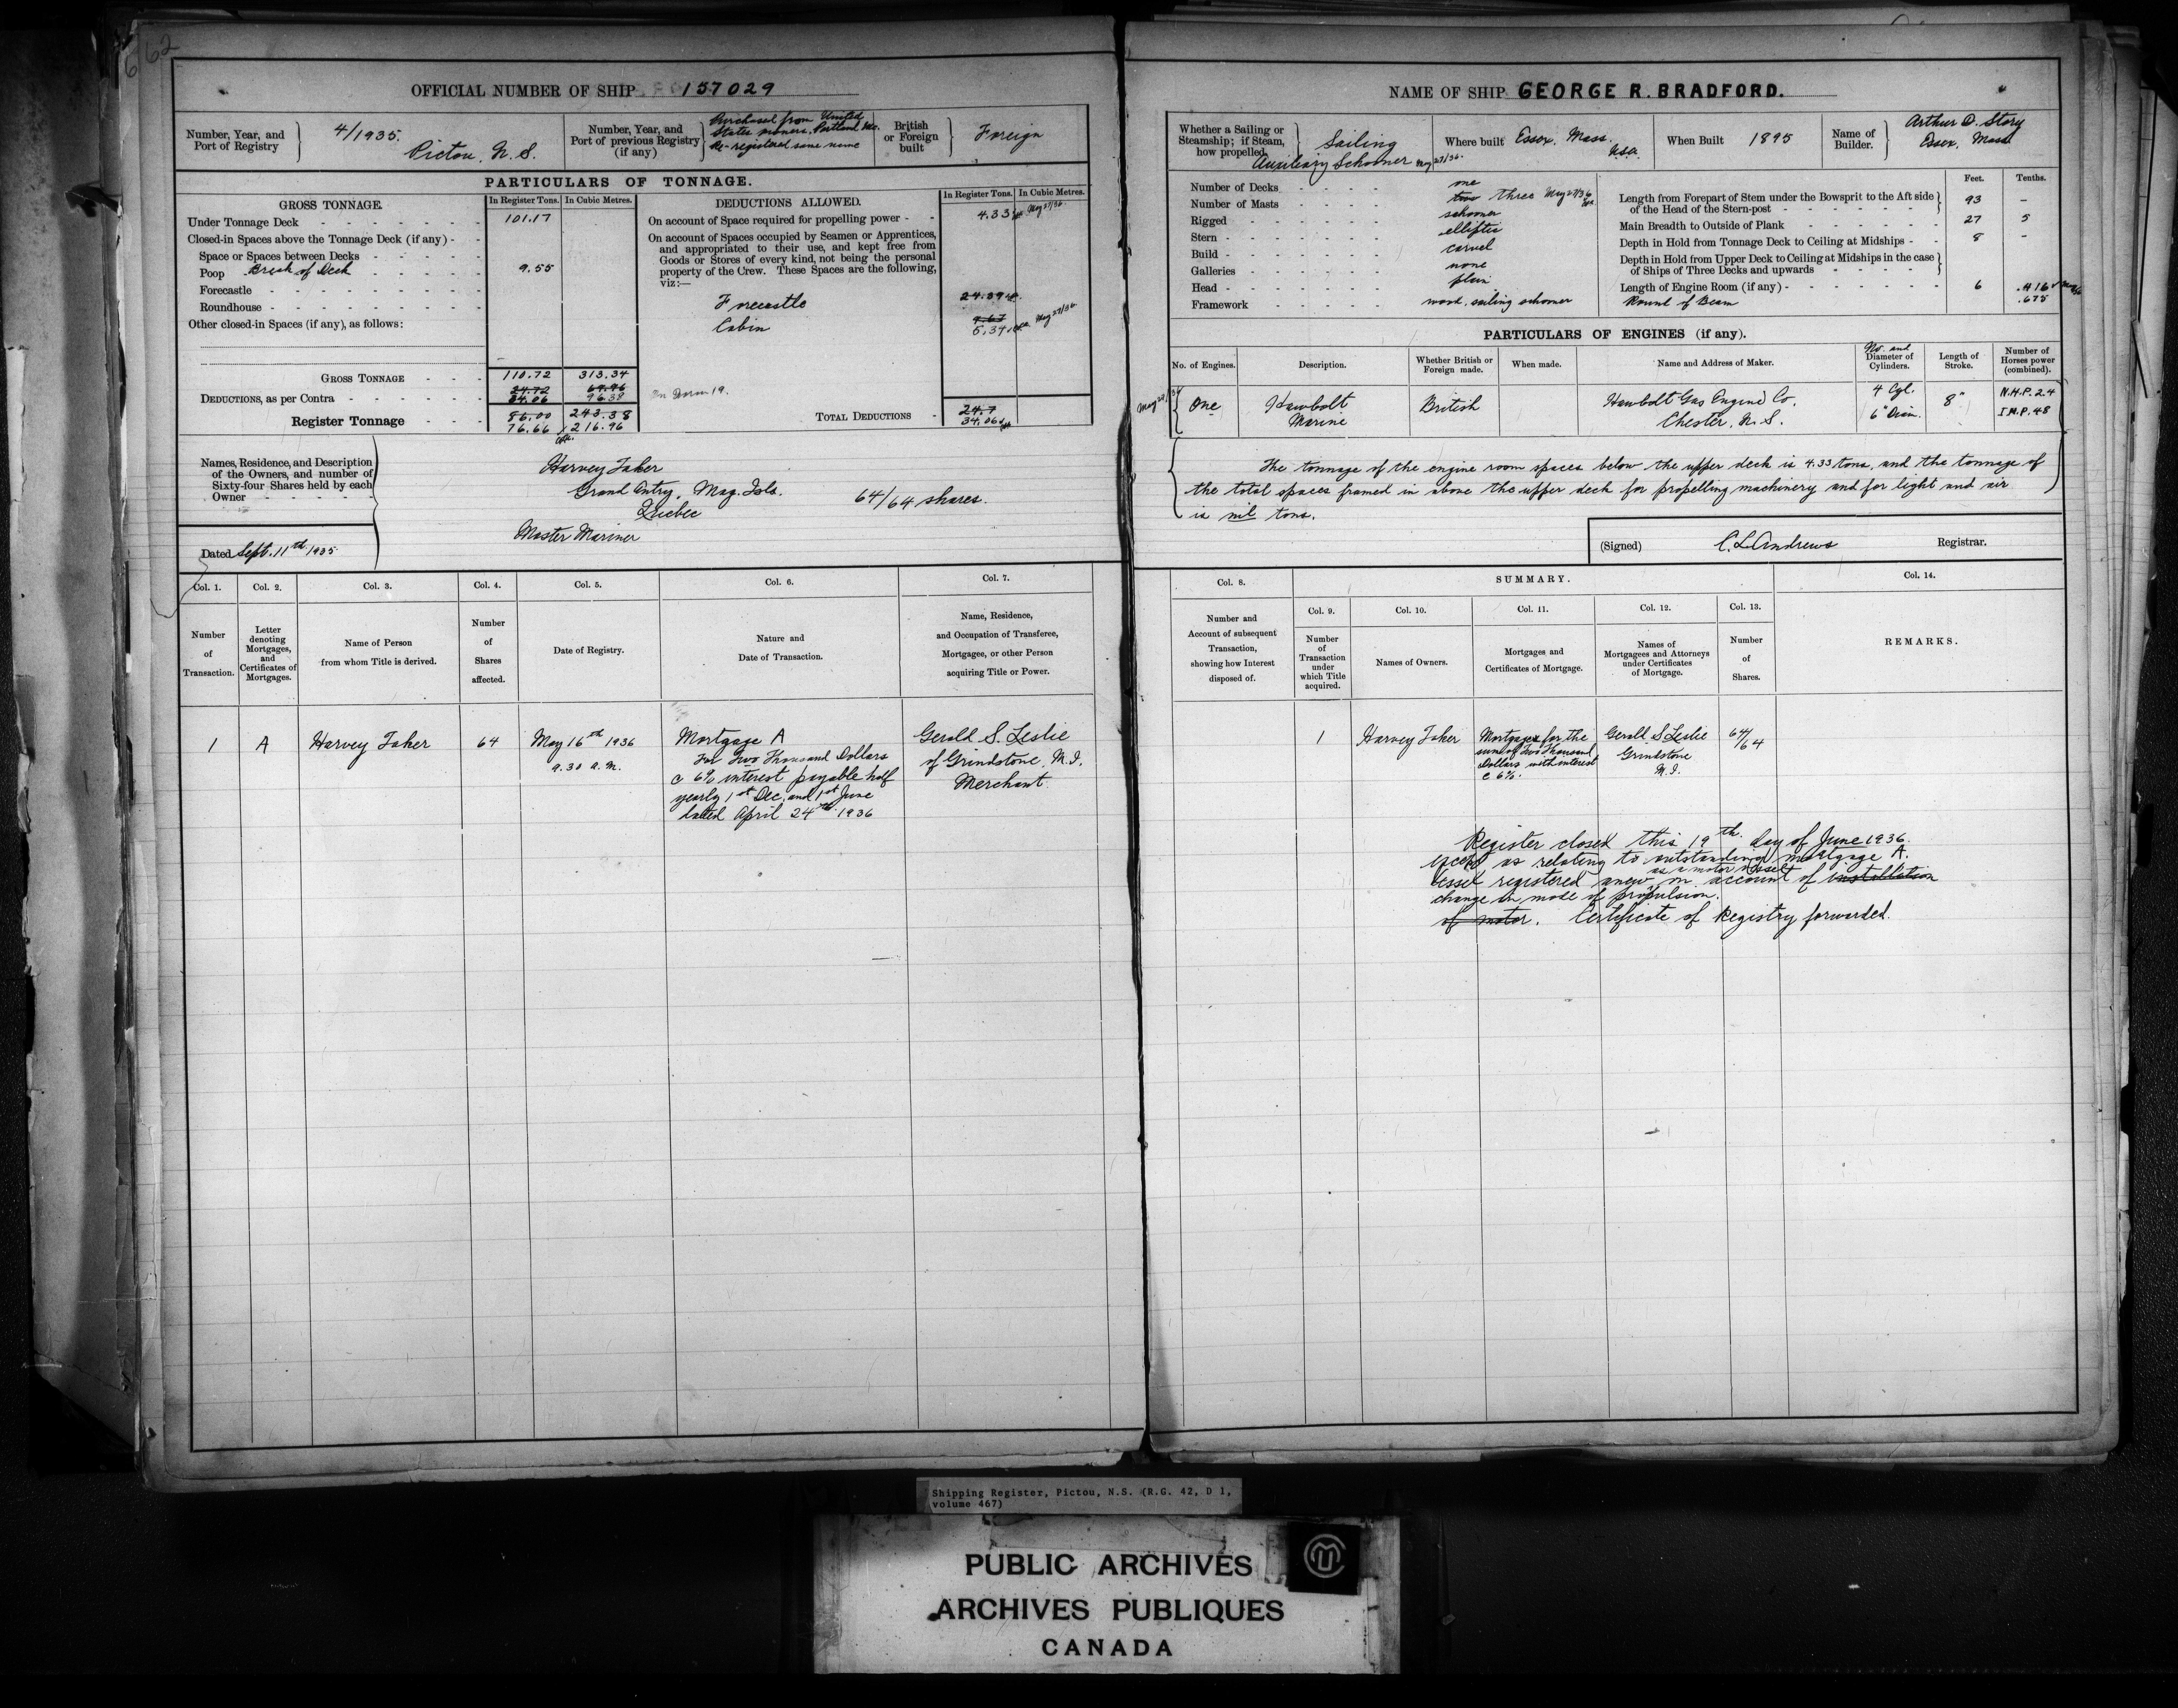 62
OFFICIAL NUMBER OF SHIP 157029
Number, Year, and Port of Registry
4/1935.
Pictou, N.S.
Number, Year, and Port of previous Registry (if any)
Purchased from United
States owners, Portland Me.
Re-registered same name
British or Foreign built
Foreign
PARTICULARS OF TONNAGE.
GROSS TONNAGE.
In Register Tons.
In Cubic Metres.
Under Tonnage Deck 101.17
Closed-in Spaces above the Tonnage Deck (if any)
Space or Spaces between Decks
Poop Break of Deck 9.55
Forecastle
Roundhouse
Other closed-in Spaces (if any), as follows:
GROSS TONNAGE 110.72 313.34
DEDUCTIONS, as per Contra 24.72 69.96
34.06 96.38
Register Tonnage 86.00 243.38
76.66 216.96
DEDUCTIONS ALLOWED.
In Register Tons.
In Cubic Metres.
On account of Space required for propelling power 4.33 May 27/36
On account of Spaces occupied by Seamen or Apprentices,
and appropriated to their use, and kept free from
Goods or Stores of every kind, not being the personal
property of the Crew. These Spaces are the following,
viz:—
Forecastle 24.39
Cabin
5.34 May 27/36
TOTAL DEDUCTIONS 24.7
34.06
Names, Residence, and Description
of the Owners, and number of
Sixty-four Shares held by each
Owner
Harvey Taker
Grand Entry, Mag. Isls.
Quebec
64/64 shares.
Master Mariner
Dated Sept. 11th 1935.
Col. 1.
Number of Transaction.
Col. 2.
Letter denoting Mortgages, and Certificates of Mortgages.
Col. 3.
Name of Person from whom Title is derived.
Col. 4.
Number of Shares affected.
Col. 5.
Date of Registry.
Col. 6.
Nature and Date of Transaction.
Col. 7.
Name, Residence, and Occupation of Transferee, Mortgagee, or other Person acquiring Title or Power.
1
A
Harvey Taker
64
May 16th 1936
9.30 a.m.
Mortgage A
For Two Thousand Dollars
@ 6% interest payable half
yearly 1st Dec. and 1st June
dated April 24th 1936
Gerald S. Leslie
of Grindstone, M.I.
Merchant.
NAME OF SHIP GEORGE R. BRADFORD.
Whether a Sailing or Steamship; if Steam, how propelled.
Sailing
Auxiliary Schooner May 27/36.
Where built Essex, Mass. U.S.A.
When Built 1895
Name of Builder.
Arthur D. Story
Essex, Mass.
Number of Decks one
Number of Masts two three May 27/36
Rigged schooner
Stern elliptic
Build carvel
Galleries none
Head plain
Framework wood, sailing schooner
Feet. Tenths.
Length from Forepart of Stem under the Bowsprit to the Aft side of the Head of the Stern-post 93 –
Main Breadth to Outside of Plank 27 5
Depth in Hold from Tonnage Deck to Ceiling at Midships 8 –
Depth in Hold from Upper Deck to Ceiling at Midships in the case of Ships of Three Decks and upwards
Length of Engine Room (if any) 6 .416
Round of Beam .675
PARTICULARS OF ENGINES (if any).
No. of Engines.
Description.
Whether British or Foreign made.
When made.
Name and Address of Maker.
No. and Diameter of Cylinders.
Length of Stroke.
Number of Horses power (combined).
One
Hawbolt
Marine
British
Hawbolt Gas Engine Co.
Chester, N.S.
4 Cyl.
6" Diam.
8"
N.H.P. 2.4
I.H.P. 48
The tonnage of the engine room spaces below the upper deck is 4.33 tons, and the tonnage of
the total spaces framed in above the upper deck for propelling machinery and for light and air
is nil tons.
(Signed) C. L. Andrews Registrar.
Col. 8.
Number and Account of subsequent Transaction, showing how Interest disposed of.
SUMMARY.
Col. 9.
Number of Transaction under which Title acquired.
Col. 10.
Names of Owners.
Col. 11.
Mortgages and Certificates of Mortgage.
Col. 12.
Names of Mortgagees and Attorneys under Certificates of Mortgage.
Col. 13.
Number of Shares.
Col. 14.
REMARKS.
1
Harvey Taker
Mortgages for the
sum of Two Thousand
Dollars with interest
@ 6%.
Gerald S. Leslie
Grindstone
M.I.
64/64
Register closed this 19th day of June 1936.
except as relating to outstanding mortgage A.
as a motor vessel
Vessel registered anew on account of installation
change in mode of propulsion.
of motor. Certificate of Registry forwarded.
Shipping Register, Pictou, N.S. (R.G. 42, D 1,
volume 467)
PUBLIC ARCHIVES
ARCHIVES PUBLIQUES
CANADA